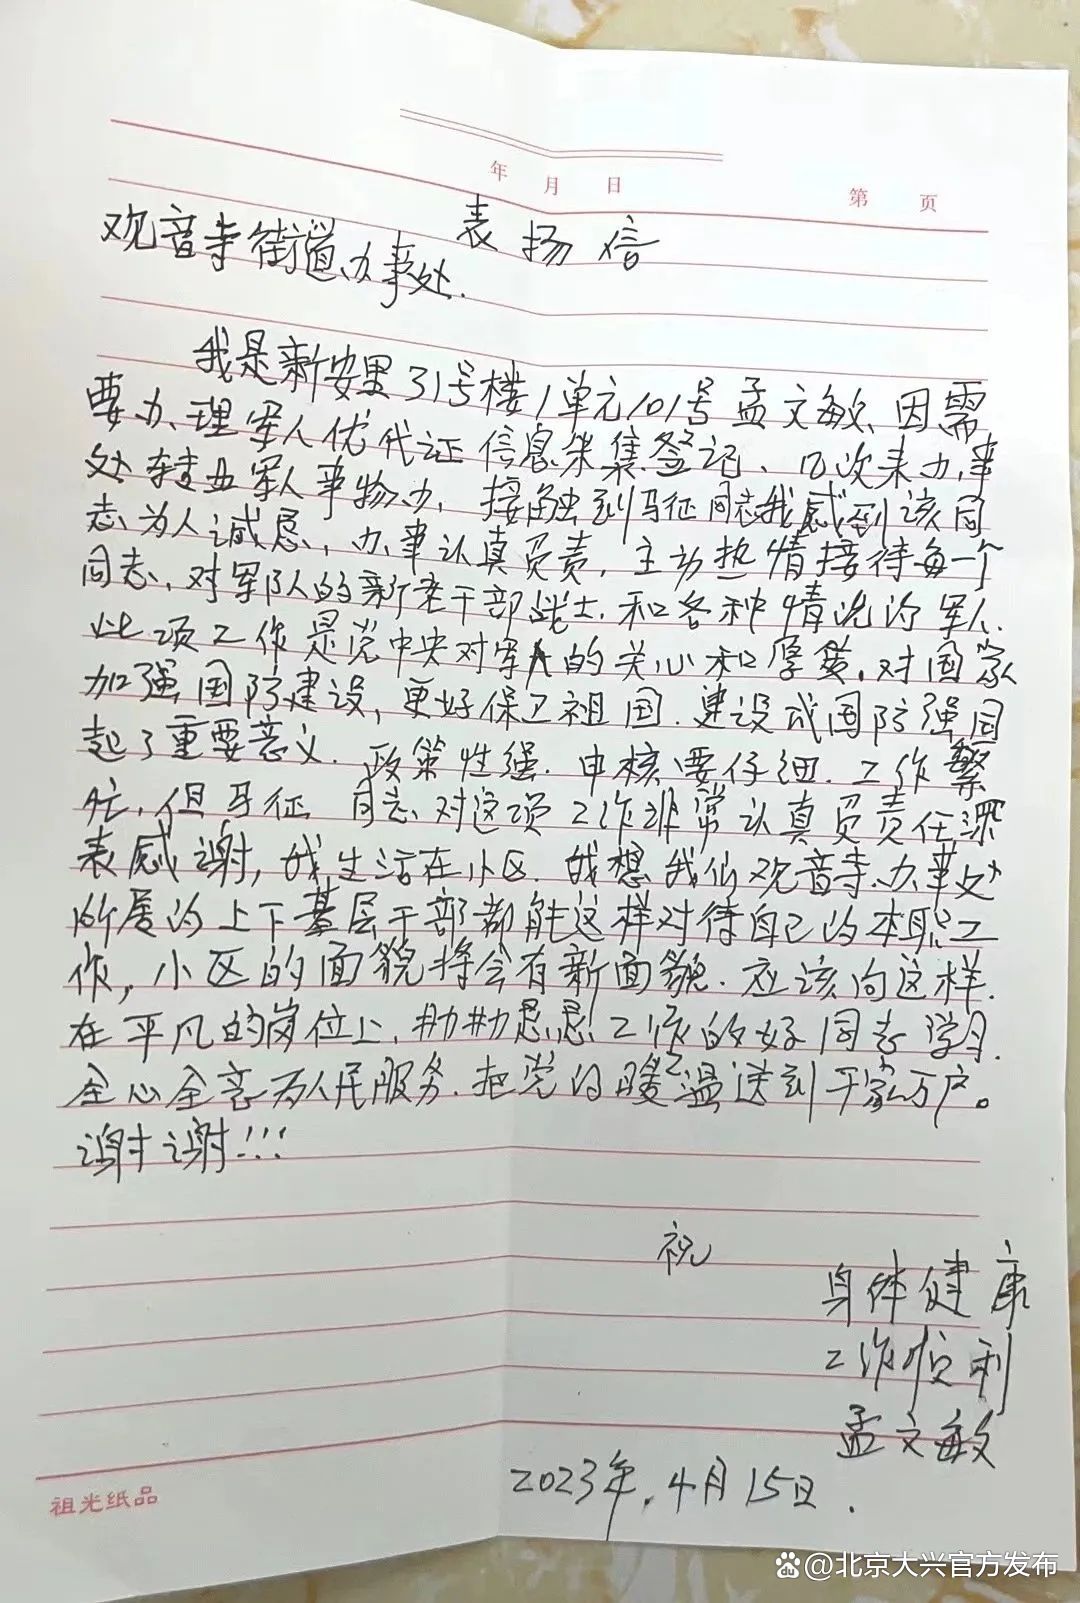 年 月 日
第 页
表扬信
观音寺街道办事处.
我是新安里31号楼1单元101号孟文敏、因需
要办理军人优代证信息采集登记、几次来办事
处转业军人事物办,接触到马征同志我感到该同
志为人诚恳,办事认真负责,主动热情接待每一个
同志,对军队的新老干部战士.和各种情况的军人.
此项工作是党中央对军人的关心和厚爱.对国家
加强国防建设,更好保卫祖国.建设成国防强国
起了重要意义.政策性强.申核要仔细.工作繁
忙,但马征同志对这项工作非常认真负责任深
表感谢,我生活在小区.我想我们观音寺办事处
所属的上下基层干部都能这样对待自己的本职工
作,小区的面貌将会有新面貌.应该向这样.
在平凡的岗位上,勤勤恳恳工作的好同志学习.
全心全意为人民服务.把党的暖温送到千家万户。
谢谢!!!
祝
身体健康
工作顺利
孟文敏
2023年.4月15日.
祖光纸品
@北京大兴官方发布